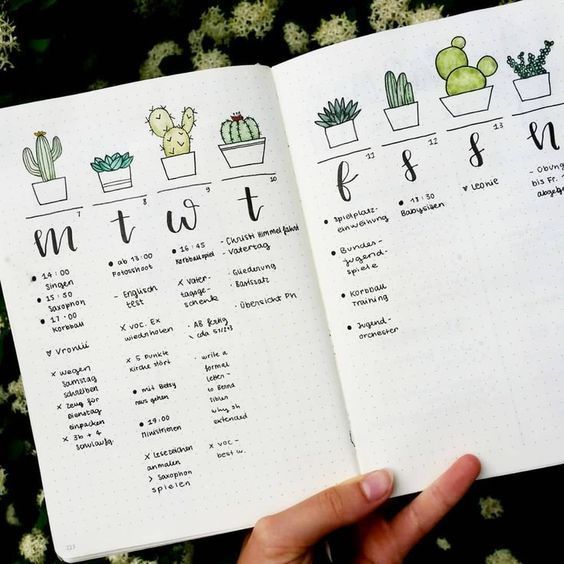 7
m
• 14:00
Singen
• 15:50
Saxophon
• 17:00
Korbball
♡ Vronii
x wegen
Samstag
schreiben
x Zeug für
Dienstag
einpacken
x 3b + 4
8
t
• ab 13:00
Fotoshoot
- Englisch
test
x voc. Ex
wiederholen
x 5 Punkte
Kirche stört
• mit Betsy
raus gehen
• 19:00
Ministrieren
x Lesezeichen
anmalen
> Saxophon
spielen
9
w
• 16:45
Korbballspiel
x Vater-
tagsge-
schenke
- AB fertig
- write a
formel
letter
to
why ob
extended
x voc-
best w.
10
t
- Christi Himmelfahrt
- Vatertag
- Gliederung
- Bassatz
- Übersicht Ph
11
f
• Spielplatz-
einweihung
• Bundes-
jugend-
spiele
• Korbball
Training
• Jugend-
orchester
12
s
• 18:30
Babysitten
13
s
♡ Leonie
n
- Übung
bis Fr.
123